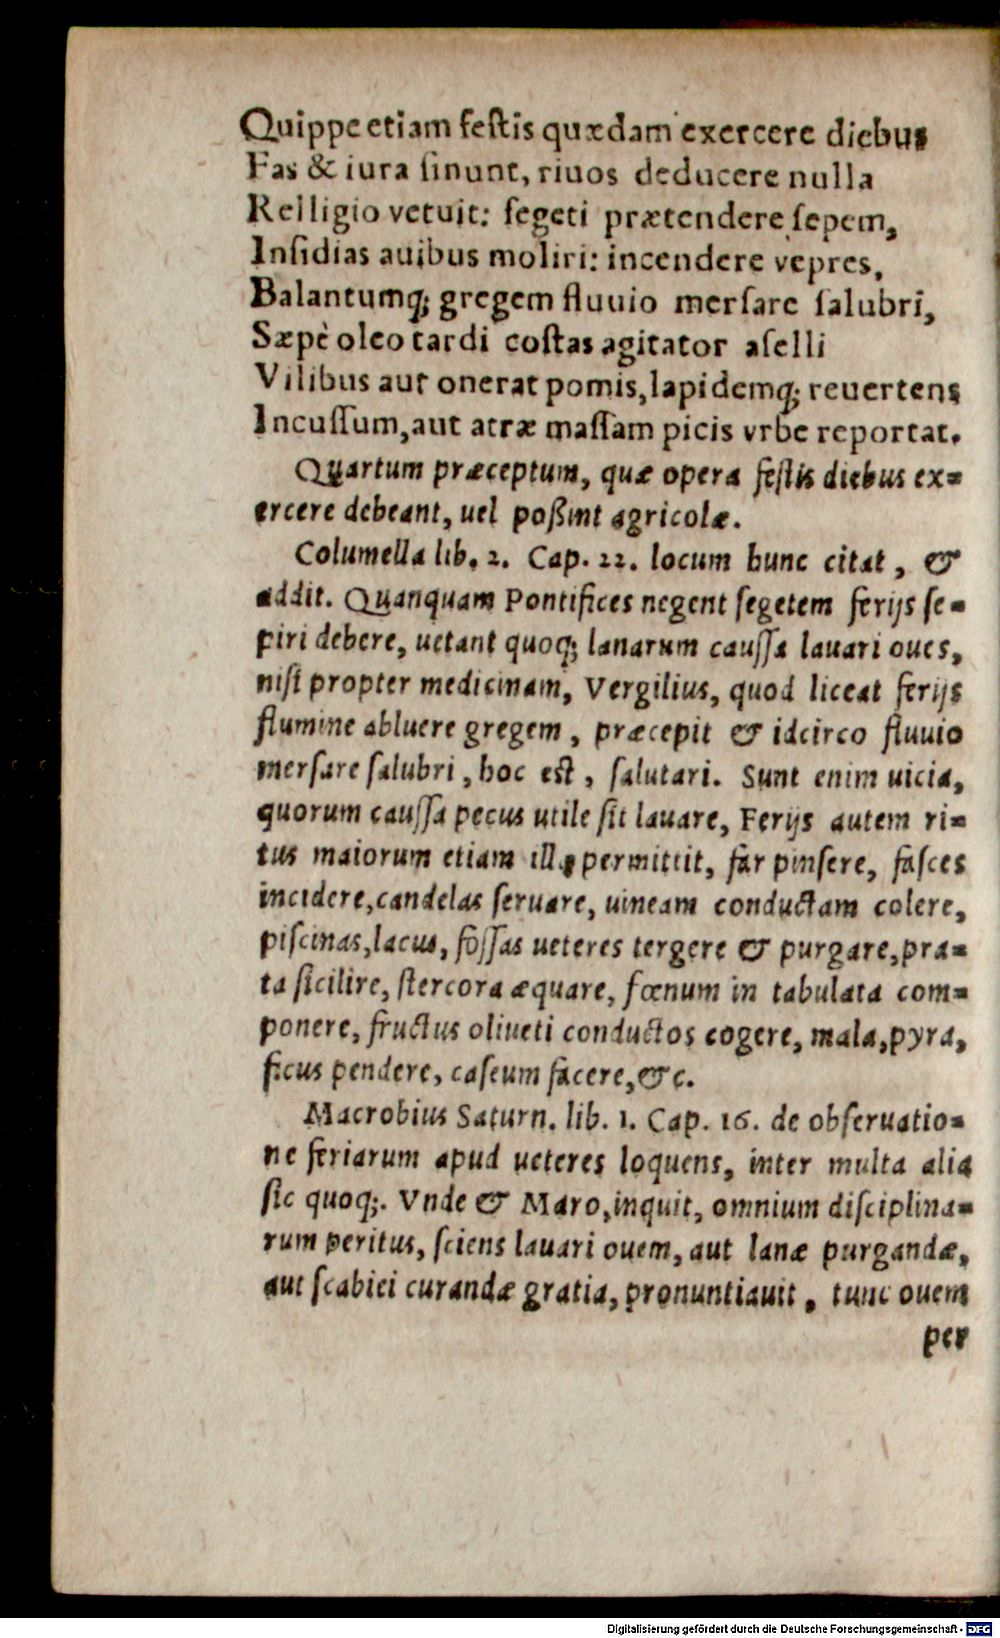 Quippe etiam festis quædam exercere diebus
Fas & iura sinunt, riuos deducere nulla
Relligio vetuit: segeti prætendere sepem,
Insidias auibus moliri: incendere vepres,
Balantumq; gregem fluuio mersare salubri,
Sæpè oleo tardi costas agitator aselli
Vilibus aut onerat pomis, lapidemq; reuertens
Incussum, aut atræ massam picis vrbe reportat.
Quartum præceptum, quæ opera festis diebus ex-
ercere debeant, uel poßint agricolæ.
Columella lib. 2. Cap. 22. locum hunc citat, &
addit. Quanquam Pontifices negent segetem ferijs se-
piri debere, uetant quoq; lanarum caussa lauari oues,
nisi propter medicinam, Vergilius, quod liceat ferijs
flumine abluere gregem, præcepit & idcirco fluuio
mersare salubri, hoc est, salutari. Sunt enim uicia,
quorum caussa pecus utile sit lauare, Ferijs autem ri-
tus maiorum etiam illa permittit, far pinsere, fasces
incidere, candelas seruare, uineam conductam colere,
piscinas, lacus, fossas ueteres tergere & purgare, pra-
ta sicilire, stercora æquare, fœnum in tabulata com-
ponere, fructus oliueti conductos cogere, mala, pyra,
ficus pendere, caseum facere, &c.
Macrobius Saturn. lib. 1. Cap. 16. de obseruatio-
ne feriarum apud ueteres loquens, inter multa alia
sic quoq;. Vnde & Maro, inquit, omnium disciplina-
rum peritus, sciens lauari ouem, aut lanæ purgandæ,
aut scabiei curandæ gratia, pronuntiauit, tunc ouem
per
Digitalisierung gefördert durch die Deutsche Forschungsgemeinschaft - DFG